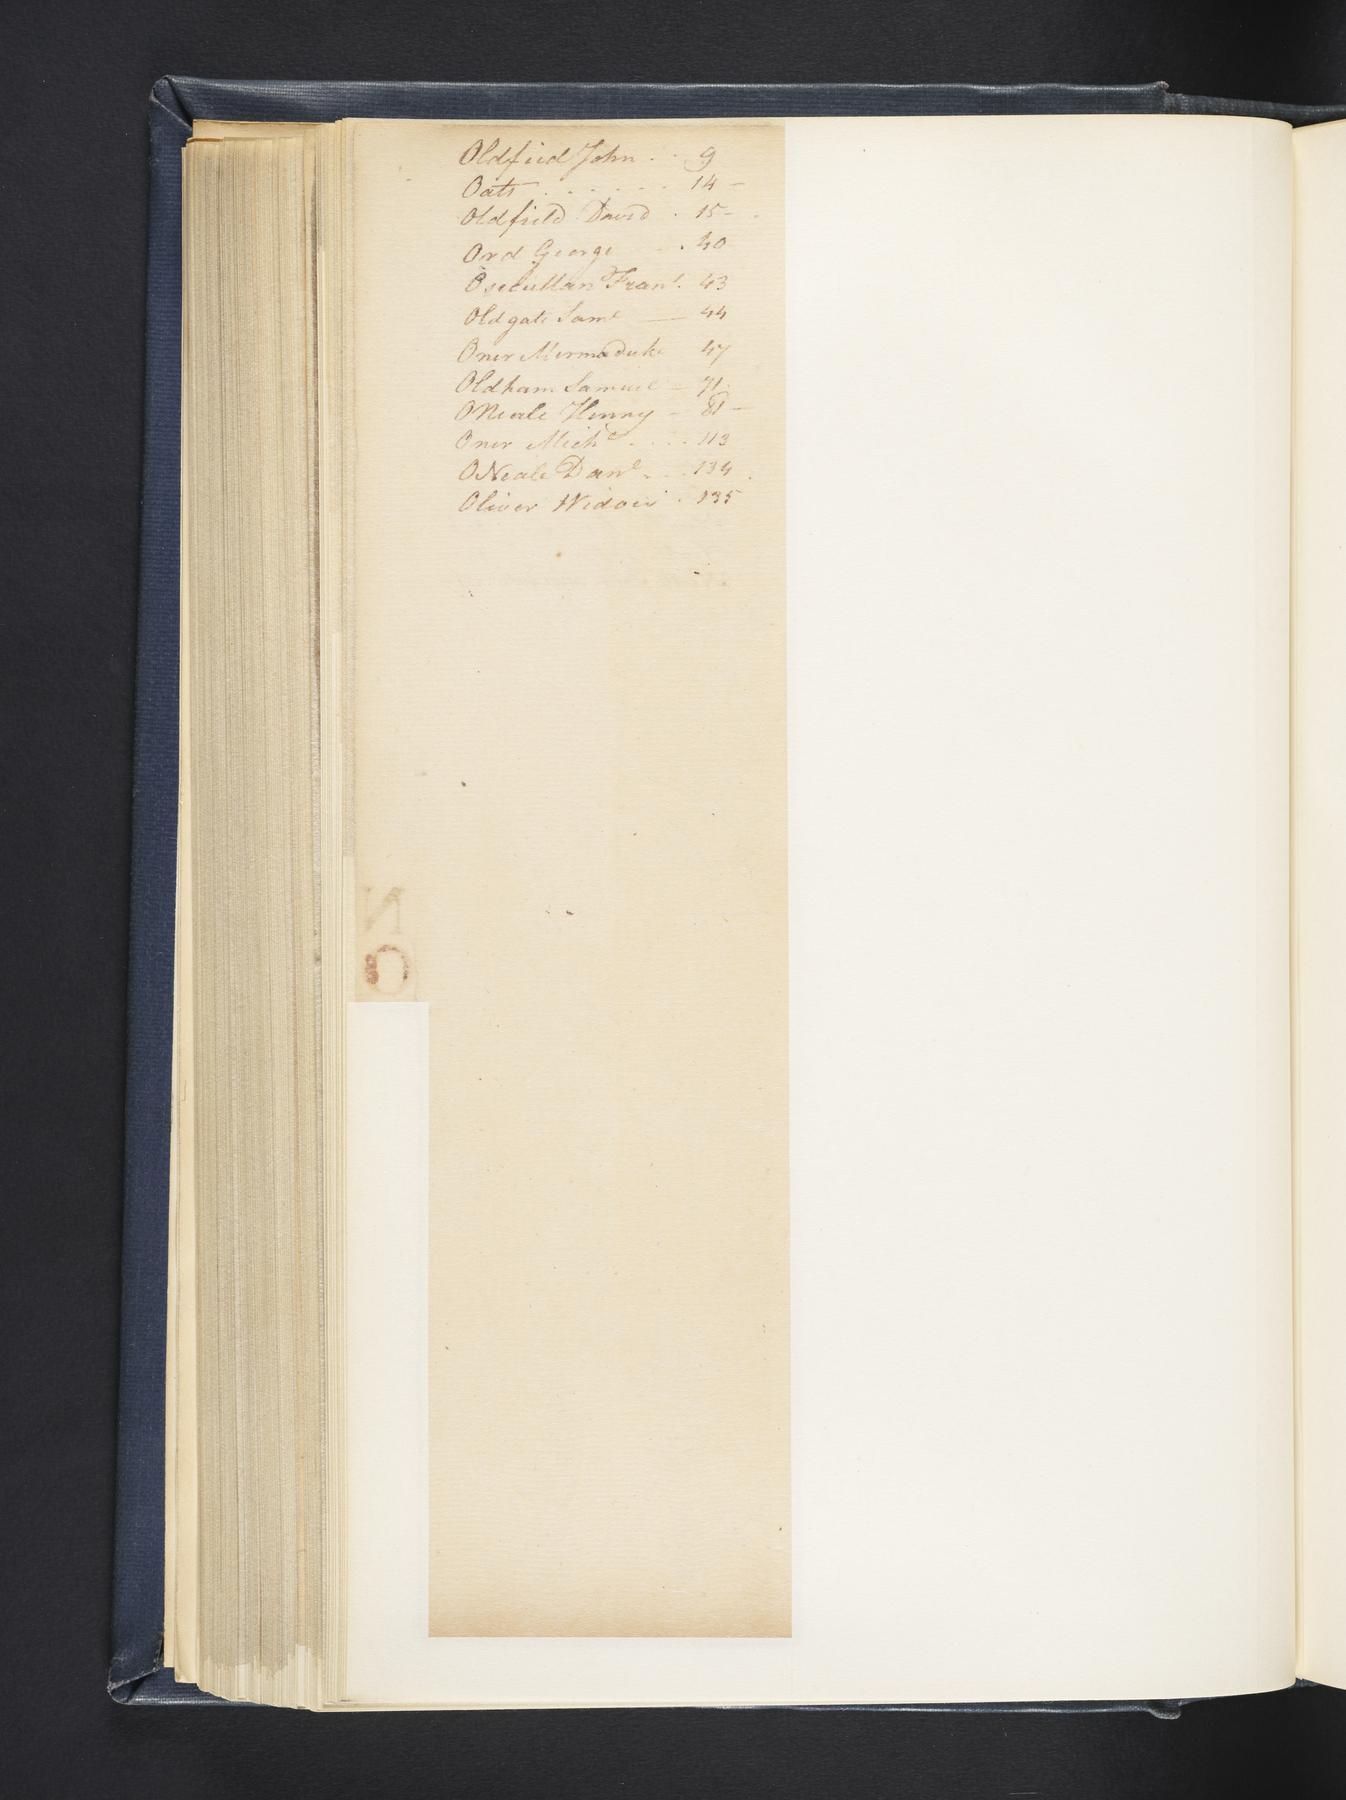 Oldfield John . . 9
Oats . . . . . . 14 -
Oldfield David . 15 -
Ord George . 40
43
Oldgate Saml — 44
Oner Mermaduke 47
Oldham Samuel - 71
ONeale Henny - 81 -
Oner Michl . . . . 113
ONeale Danl . . . 134
Oliver Widow . 135
N
O